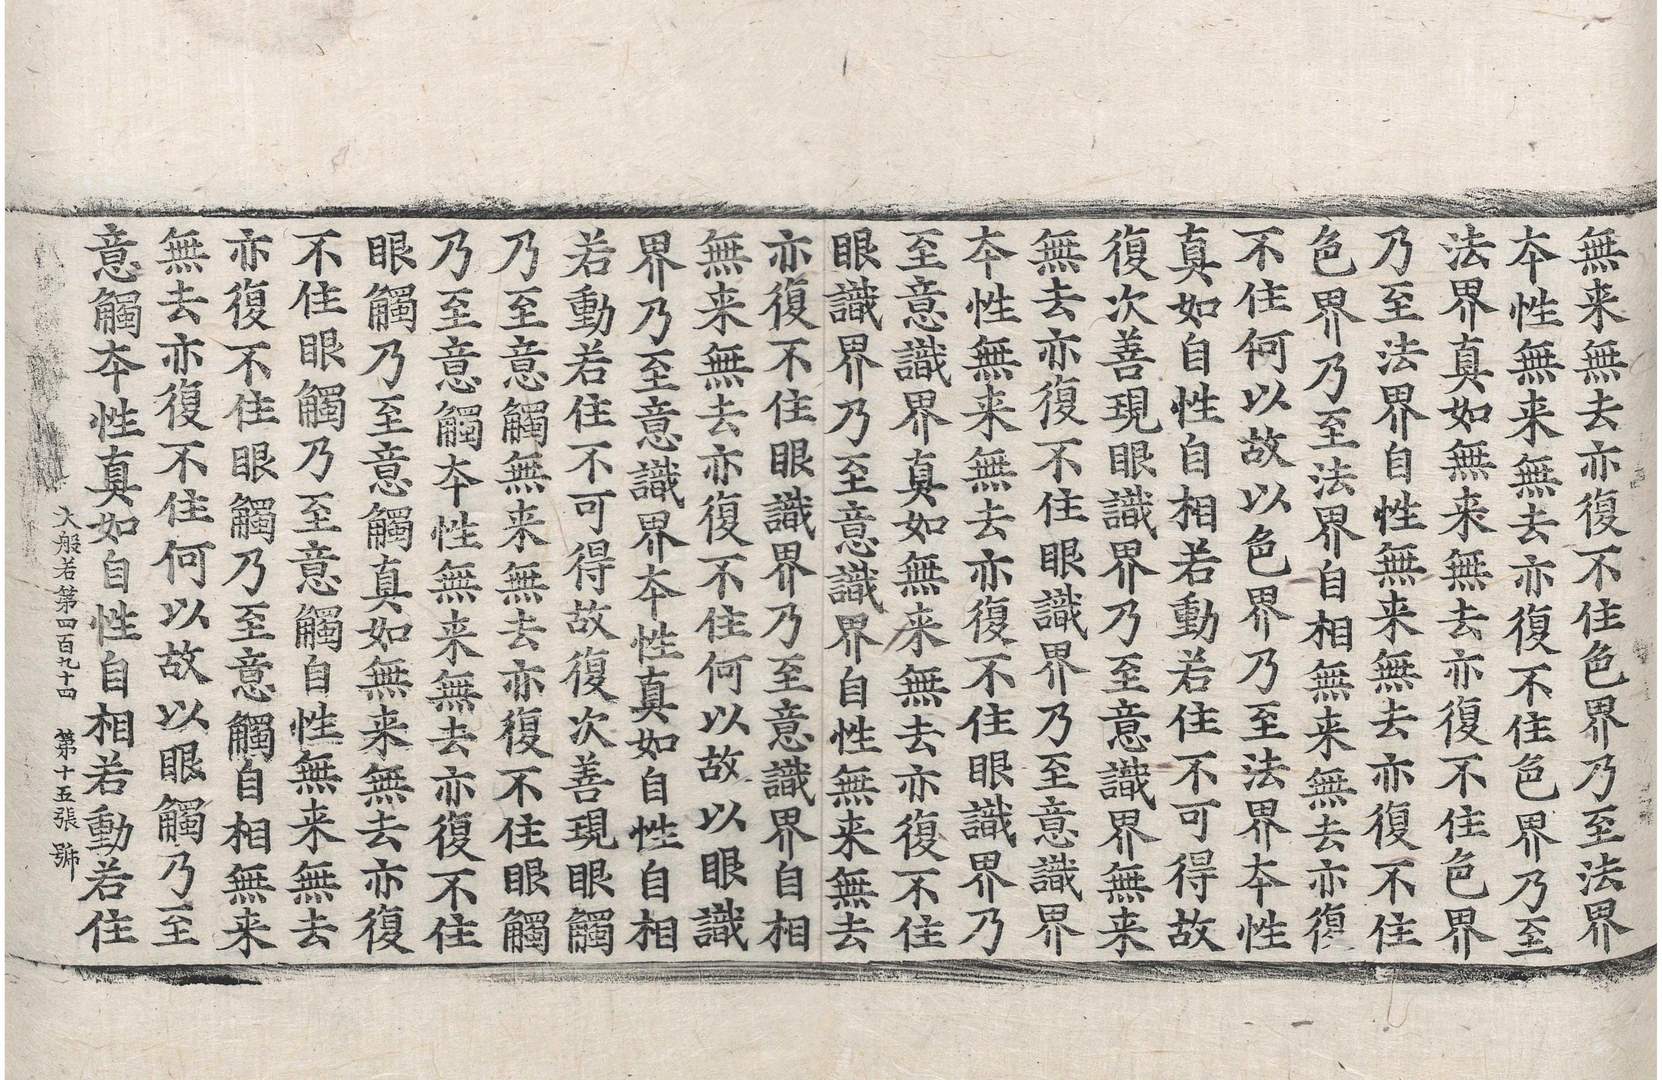 無来無去亦復不住色界乃至法界
夲性無来無去亦復不住色界乃至
法界真如無来無去亦復不住色界
乃至法界自性無来無去亦復不住
色界乃至法界自相無来無去亦復
不住何以故以色界乃至法界夲性
真如自性自相若動若住不可得故
復次善現眼識界乃至意識界無来
無去亦復不住眼識界乃至意識界
夲性無来無去亦復不住眼識界乃
至意識界真如無来無去亦復不住
眼識界乃至意識界自性無来無去
亦復不住眼識界乃至意識界自相
無来無去亦復不住何以故以眼識
界乃至意識界夲性真如自性自相
若動若住不可得故復次善現眼觸
乃至意觸無来無去亦復不住眼觸
乃至意觸夲性無来無去亦復不住
眼觸乃至意觸真如無来無去亦復
不住眼觸乃至意觸自性無来無去
亦復不住眼觸乃至意觸自相無来
無去亦復不住何以故以眼觸乃至
意觸夲性真如自性自相若動若住
大般若第四百九十四 第十五張 號